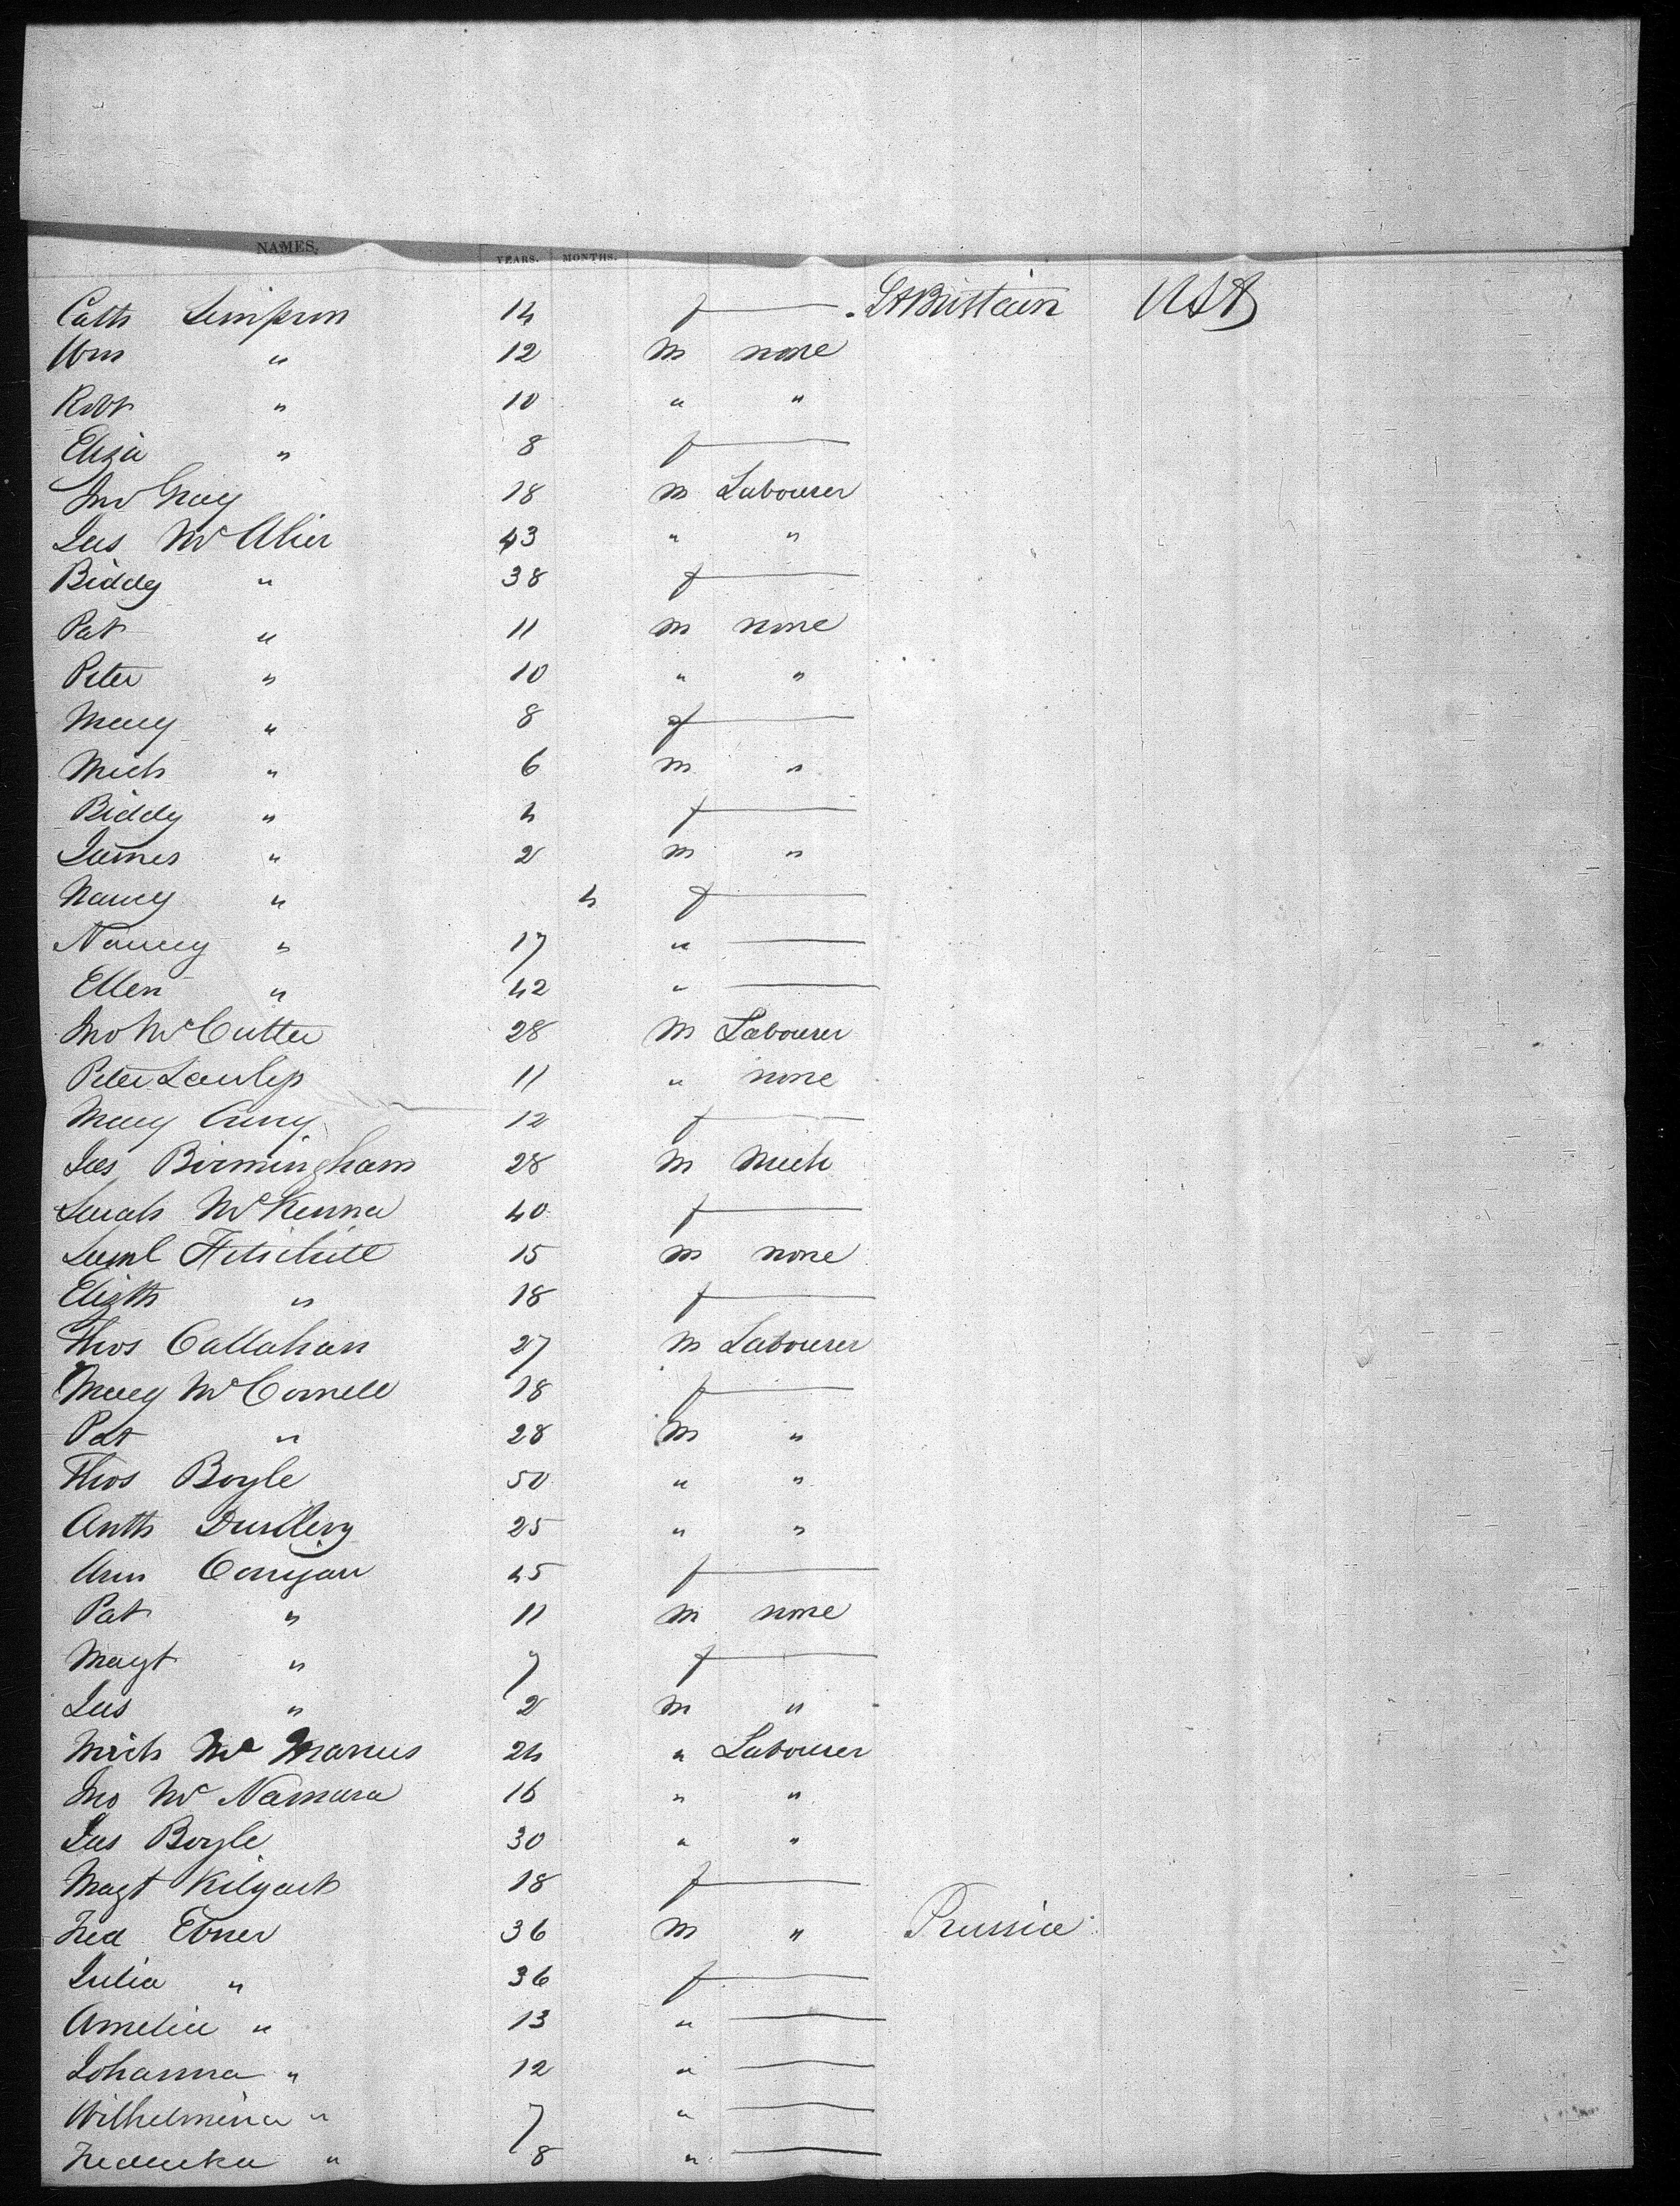 NAMES. YEARS. MONTHS.
Cath Simpson 14 f — Gt Brittain USA
Wm " 12 m none
Robt " 10 " "
Eliza " 8 f —
Jno Gray 18 m Labourer
Jas McAlier 43 " "
Biddy " 38 f —
Pat " 11 m none
Peter " 10 " "
Mary " 8 f —
Mich " 6 m "
Biddy " 4 f —
James " 2 m "
Nancy " 4 f —
Nancy " 17 " —
Ellen " 42 " —
Jno McCutter 28 m Labourer
Peter 11 " none
Mary Curry 12 f —
Jas Birmingham 28 m Mech
Sarah McKenna 40 f —
Saml 15 m none
Elizth " 18 f —
Thos Callahan 27 m Labourer
Mary McConnell 18 f —
Pat " 28 m "
Thos Boyle 50 " "
Anth 25 " "
Ann Corrigan 45 f —
Pat " 11 m none
Magt " 7 f —
Jas " 2 m "
Mich McManus 24 " Labourer
Jno McNamara 16 " "
Jas Boyle 30 " "
Magt 18 f —
Fred Ebner 36 m " Prussia
Julia " 36 f —
Amelia " 13 " —
Johanna " 12 " —
Wilhelmina " 7 " —
Frederika " 8 " —